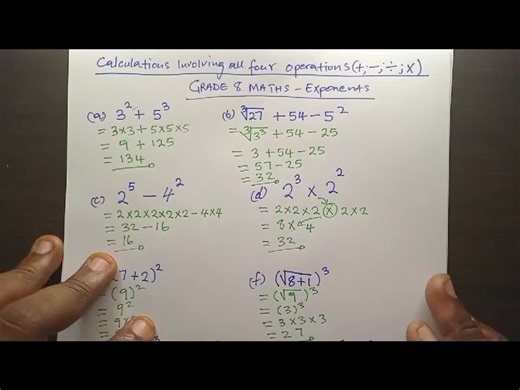 Calculations Involving all four operations (+; -; ÷; x)
GRADE 8 MATHS - Exponents
(a) 3² + 5³
= 3x3 + 5x5x5
= 9 + 125
= 134
(b) ∛27 + 54 - 5²
= ∛3³ + 54 - 25
= 3 + 54 - 25
= 57 - 25
= 32
(c) 2⁵ - 4²
= 2x2x2x2x2 - 4x4
= 32 - 16
= 16
(d) 2³ x 2²
= 2x2x2 (x) 2x2
= 8 x 4
= 32
(7+2)²
= (9)²
= 9²
= 9x
(f) (√8+1)³
= (√9)³
= (3)³
= 3x3x3
= 27